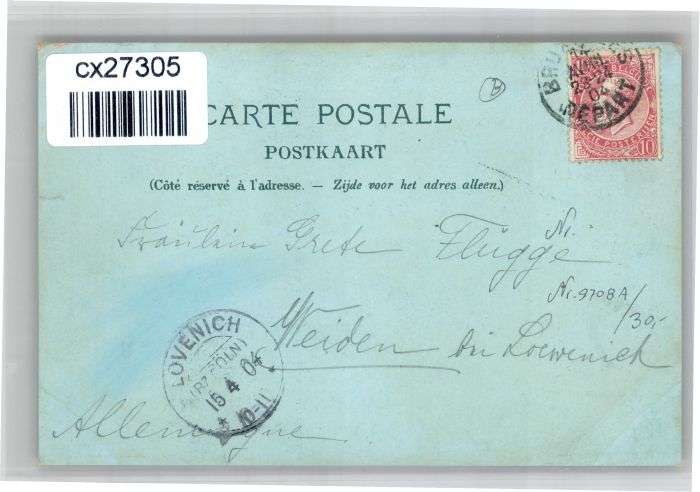 cx27305
CARTE POSTALE
POSTKAART
(Côté réservé à l'adresse. — Zijde voor het adres alleen.)
14 AVRIL
04
DEPART
10
Fräulein Grete Flügge
Nr.
Nr. 9708A
/30,-
Weiden bei Loevenich
LÖVENICH
(BZ. CÖLN)
15 4 04
* 10-11
Allemagne